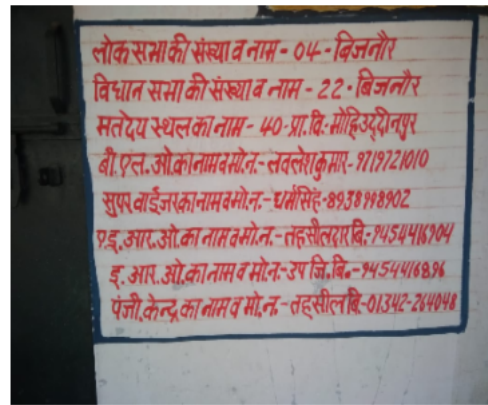 लोक सभा की संख्या व नाम - 04 - बिजनौर
विधान सभा की संख्या व नाम - 22 - बिजनौर
मतदेय स्थल का नाम - 40 - प्रा. वि. मोहिउद्दीनपुर
बी. एल. ओ. का नाम व मो. न. - लवलेश कुमार - 9719721010
सुपरवाईजर का नाम व मो. न. - धर्मसिंह - 8938998902
ए. इ. आर. ओ. का नाम व मो. न. - तहसीलदार बि. - 9454416904
इ. आर. ओ. का नाम व मो. न. - उप जि. बि. - 9454416896
पंजी. केन्द्र का नाम व मो. न. - तहसील बि. - 01342-264048